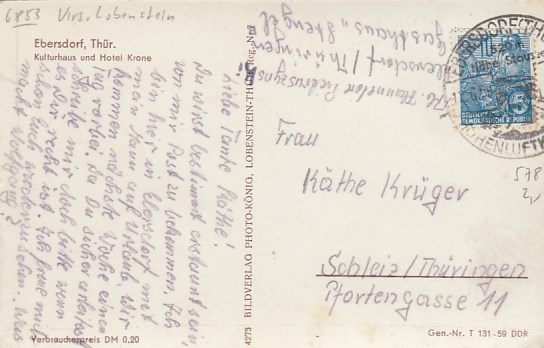 6853 Krs. Lobenstein
Ebersdorf, Thür.
Kulturhaus und Hotel Krone
Liebe Tante Käthe!
Du wirst bestimmt erstaunt sein
von mir Post zu bekommen. Ich
bin hier in Ebersdorf mit
mein Mann auf Urlaub. Wir
kommen nächste Woche einen
Tag vorbei. Da Du sicher arbeitest
schreibe mir doch bitte wenn
es Dir recht ist. Ich freue mich
schon Euch wiederzusehen. Was
macht Wolfgang?
Verbraucherpreis DM 0,20
4273 BILDVERLAG PHOTO-KÖNIG, LOBENSTEIN-THÜR. Reg.-Nr.
Hannelore
Ebersdorf/Thüringen
Gasthaus „Stengel"
EBERSDORF (THÜR
DEUTSCHE
DEMOKRATISCHE REPUBLIK
5
Frau
Käthe Krüger
Schleiz/Thüringen
Pfortengasse 11
578
Gen.-Nr. T 131-59 DDR